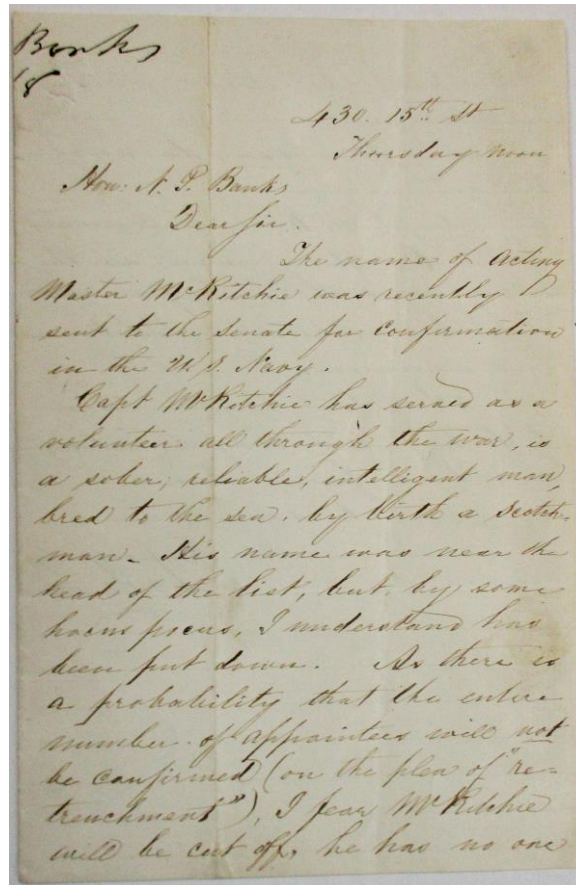 Banks
18
430. 15th St
Thursday noon
Hon: N. P. Banks
Dear Sir.
The name of Acting
Master McRitchie was recently
sent to the Senate for confirmation
in the U. S. Navy.
Capt McRitchie has served as a
volunteer all through the war, is
a sober, reliable, intelligent man,
bred to the sea. by birth a Scotch-
man. His name was near the
head of the list, but, by some
hocus pocus, I understand has
been put down. As there is
a probability that the entire
number of appointees will not
be confirmed (on the plea of "re-
trenchment"), I fear McRitchie
will be cut off, he has no one